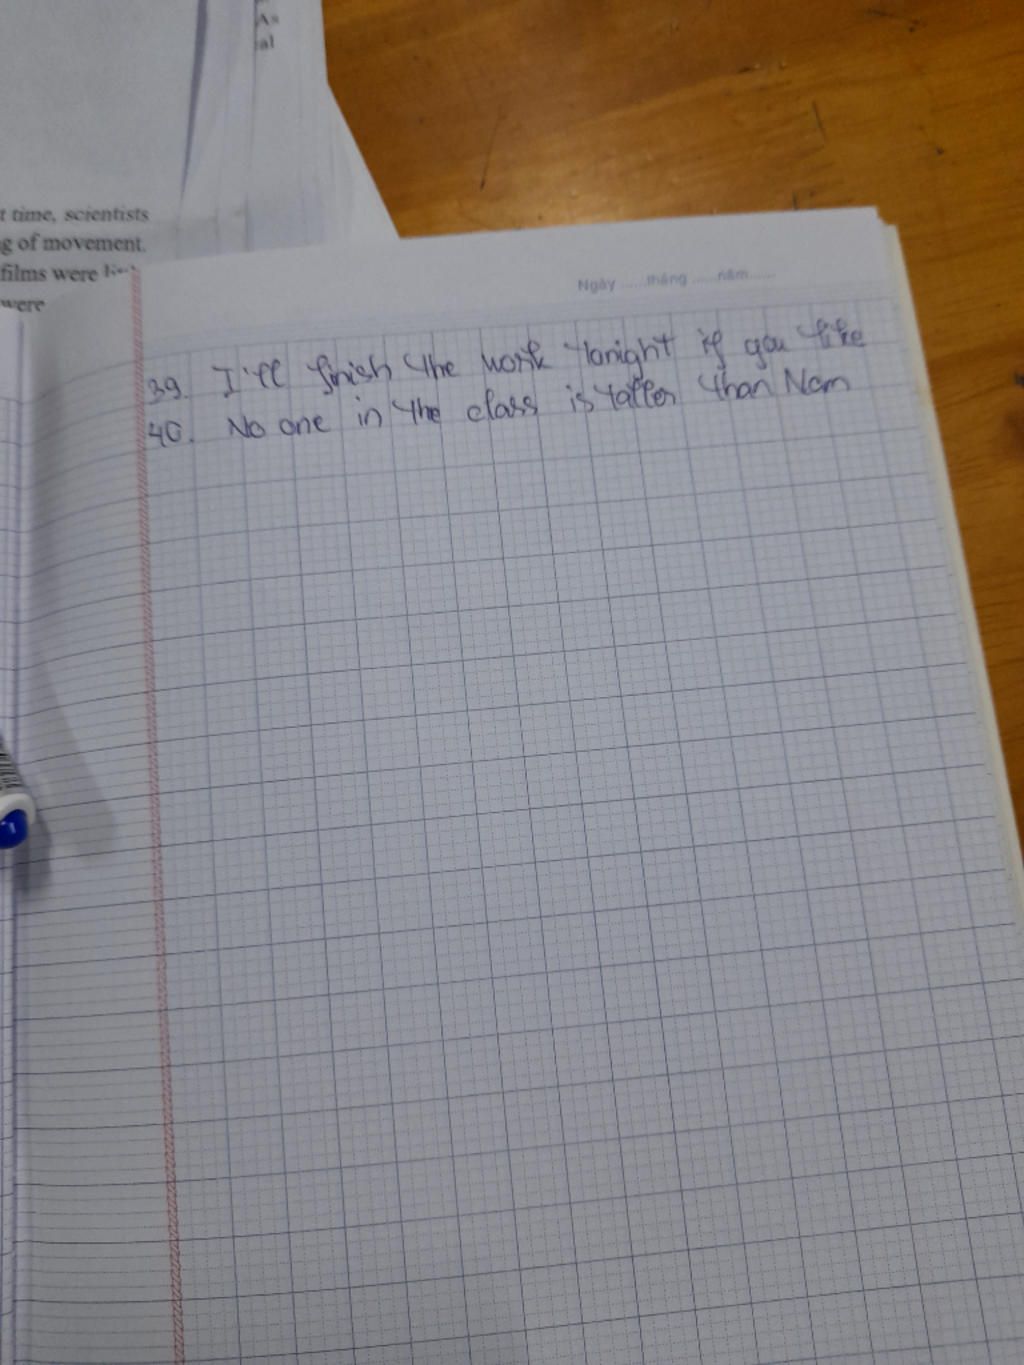 As
al
t time, scientists
g of movement.
films were
were
Ngày ......tháng ......năm......
39. I'll finish the work tonight if you like
40. No one in the class is taller than Nam